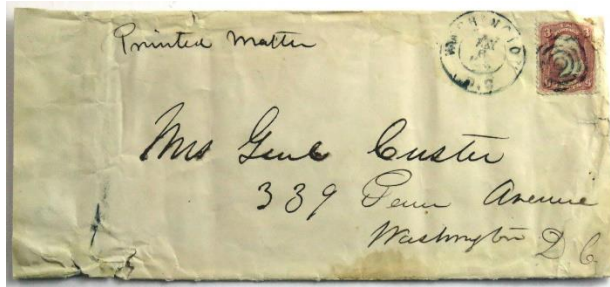 Printed Matter
WASHINGTON
MAY
D.C.
3 3
Mrs Genl Custer
339 Penn Avenue
Washington D C